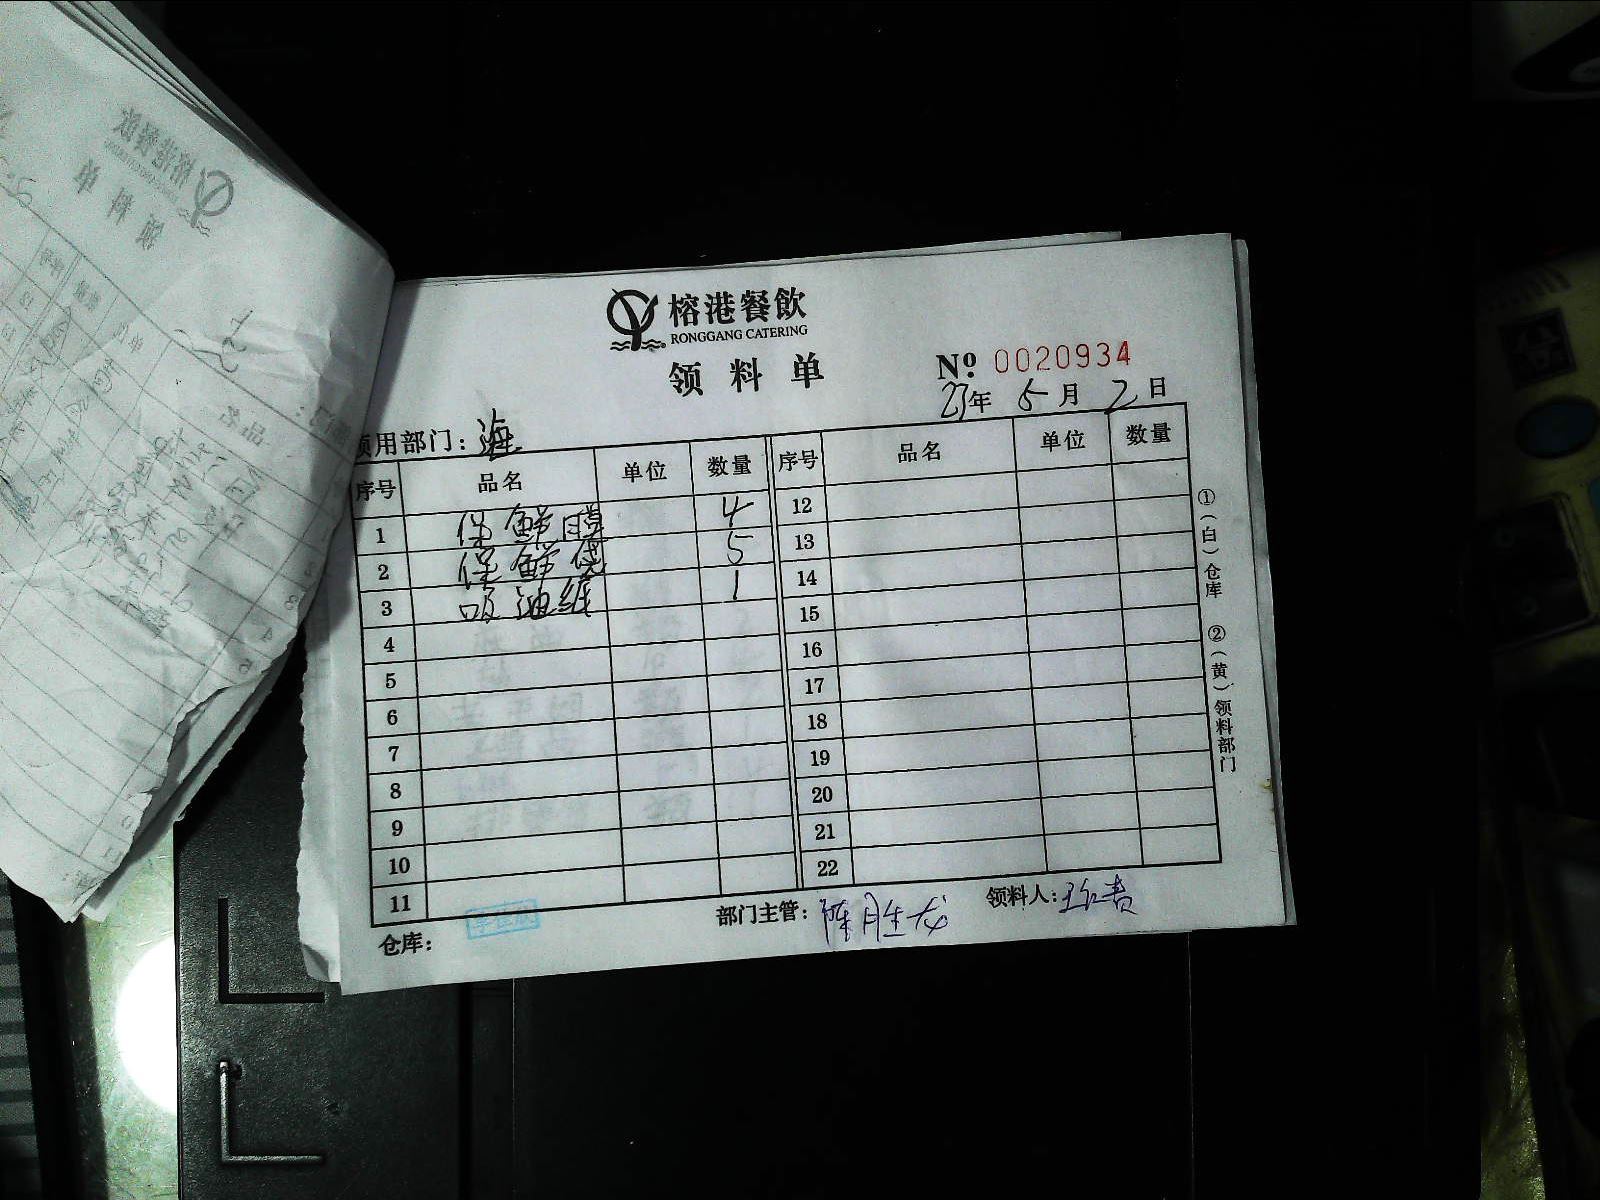 榕港餐飲
RONGGANG CATERING
领料单
№ 0020934
23年 5月 2日
领用部门：海
序号 品名 单位 数量 序号 品名 单位 数量
1 保鲜膜 4 12
2 保鲜袋 5 13
3 吸油纸 1 14
4 15
5 16
6 17
7 18
8 19
9 20
10 21
11 22
①（白）仓库 ②（黄）领料部门
仓库： 部门主管：陈胜龙 领料人：